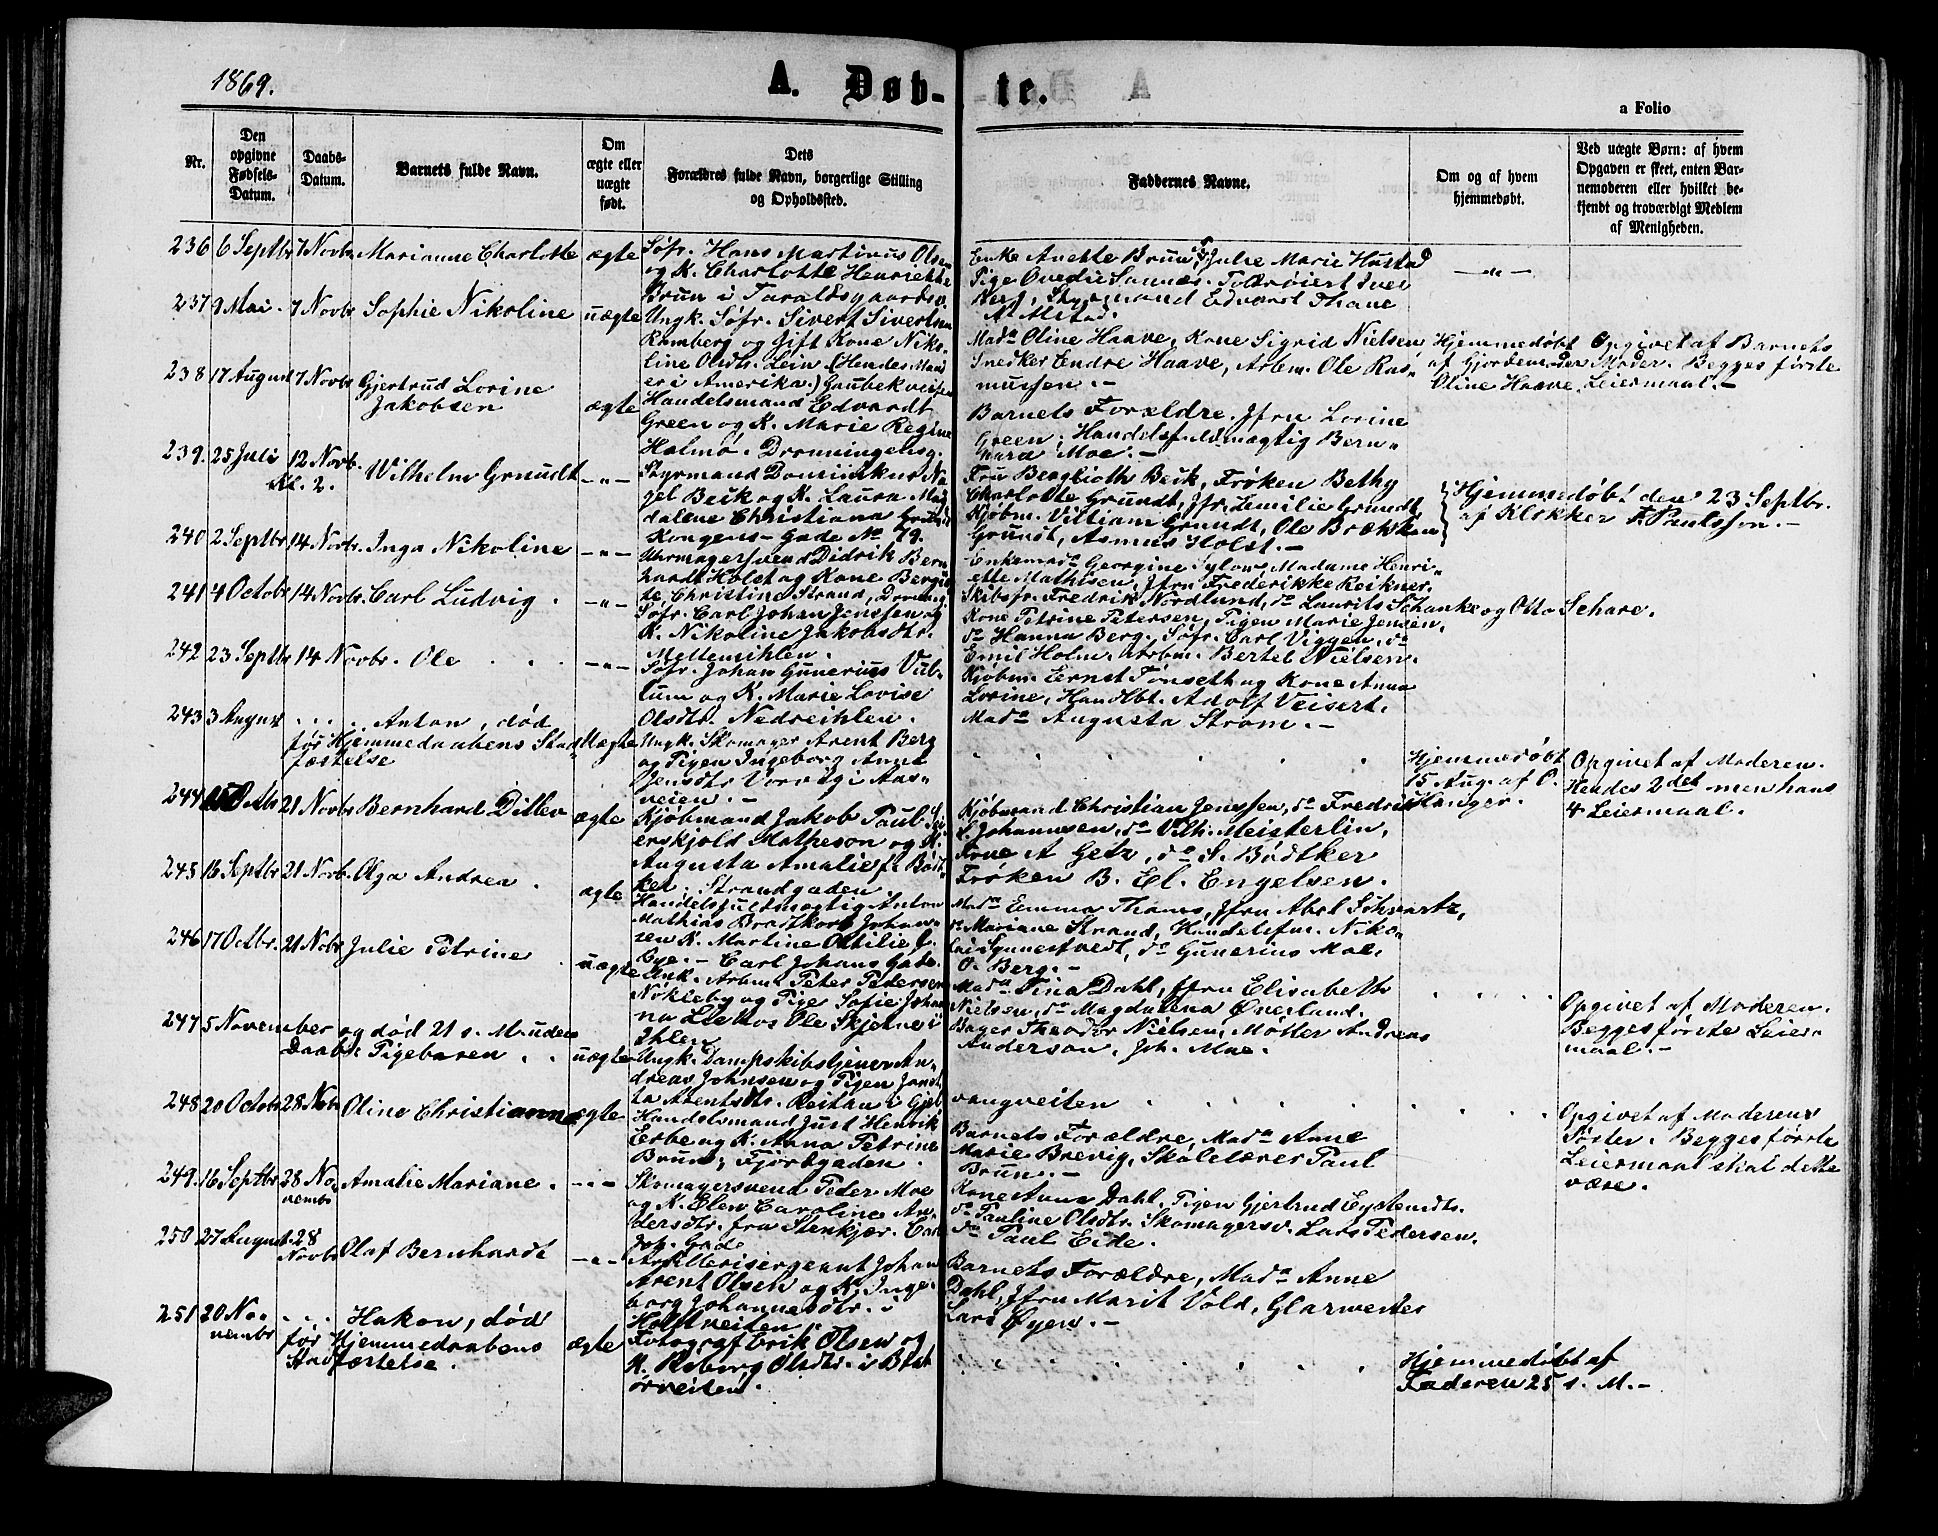 1869.
A. Døb-te.
a Folio
Nr.
Den opgivne Fødsels-Datum.
Daabs-Datum.
Barnets fulde Navn.
Om ægte eller uægte født.
Dets Forældres fulde Navn, borgerlige Stilling og Opholdssted.
Faddernes Navne.
Om og af hvem hjemmedøbt.
Ved uægte Børn: af hvem Opgaven er skeet, enten Barnemoderen eller hvilket bekjendt og troværdigt Medlem af Menigheden.
236 6 Septbr 7 Novbr Marianne Charlotte ægte
Søfr. Hans Martinus Olsen
og K. Charlotte Henriette
Brun i Taraldsgaardsv.
Enke Anette Brun, Julie Marie Hustad
Pige Ovedie Sannes.
Styrmand Edvard Thane
N. Alstad.
— " —
237 9 Mai. 7 Novbr Sophie Nikoline uægte
Ungk. Søfr. Sivert Sivertsen
Ramberg og Gift Kone Niko-
line Olsdtr. Lein (Hendes Mand
er i Amerika.) Gaubekveiten
Mada Oline Haave, Kone Sigrid Nielsen
Snedker Endre Haave, Arbm. Ole Ras-
mussen. —
Hjemmedøbt
af Gjordemoder
Oline Haave.
Opgivet af Barnets
Moder. Begges første
Leiermaal. —
238 17 August 7 Novbr Gjertrud Lorine
Jakobsen ægte
Handelsmand Edvardt
Green og K. Marie Regine
Holmø. Dronningensg.
Barnets Forældre. Jfru Lorine
Green, Handelsfuldmægtig Bern-
hard Moe. —
239. 25 Juli 12 Novb.
Kl. 2. Wilhelm Grundt — " —
Styrmand Dominikus Na-
gel Beik og K. Laura Mag-
dalene Christiana Grundt
Kongens-Gade No 79.
Fru Bergliotts Beik, Frøken Bethy
Charlotte Grundt, Jfr. Emilie Grundt,
Kjøbm. Villiam Grundt, Ole Brækken
Grundt, Asmus Holst. —
Hjemmedøbt den 23 Septbr.
af Klokker F. Paulsson. —
240 2 Septbr 14 Novbr. Inga Nikoline — " —
Uhrmagersvend Didrik Bern
hardt Holst og Kone Bergit
te Christine Strand, Dronning
Enkemada Georgine Sylow, Madame Henri-
ette Mathisen, Jfru Frederikke Reikner.
Skibsfr. Fredrik Nordlund, do Laurits Schanke og Otto Schare.
241 4 Octobr 14 Novbr. Carl Ludvig. — " —
Søfr. Carl Johan Jenssen og
K. Nikoline Jakobsdtr.
Mellemihlen.
Kone Petrine Petersen, Pigen Marie Jensen,
do Hanna Berg. Søfr. Carl Viggen, do
Emil Holm. Arbm. Bertel Nielsen.
242 23 Septbr 14 Novbr. Ole — " —
Søfr. Johan Gunerius Vub-
lum og K. Marie Lovise
Olsdtr. Nedreihlen.
Kjøbm. Ernst Fønseth og Kone Anna
Lorine, Handlbt. Adolf Veisert.
Mada Augusta Strøm. —
243 3 August . . . . Anton, død
før Hjemmedaabens Stad-
fæstelse Uægte
Ungk. Skomager Arent Berg
og Pigen Ingeborg Anna
Jensdtr Vorvig i Aas-
veien. —
Hjemmedøbt
15 Aug. af O.
Hanger.
Opgivet af Moderen.
Hendes 2det men hans
4 Leiermaal.
244 Octbr 21 Novbr Bernhard Ditlev ægte
Kjøbmand Jakob Paul
erskjold Matheson og K.
Augusta Amalie f. Bødt-
ker. Strandgaden.
Kjøbmand Christian Jenssen, do Fredrik
L Johannsen, do Vilh. Meisterlin,
Frue A Getz, do S. Bødtker
Frøken B. El. Engelsen.
245 16 Septbr 21 Novb. Olga Andrea. ægte
Handelsfuldmægtig Anton
Mathias Bratkorb Johan-
sen K. Martine Othilie f.
Bye. — Carl Johans Gade.
Mada Emma Thams, Jfru Abel Schwartz,
do Mariane Strand, Handelsfm. Niko-
lai Synnestvedt, do Gunerius Moe.
O. Berg. —
246 17 Octbr. 21 Nobr. Julie Petrine. uægte
Unk. Arbm. Peter Pedersen
Nøkleby og Pige Sofie Johan
na Lie hos Ole Skjetne i
Ihlen.
Mada Tina Dahl, Jfru Elisabeth
Nielsen, do Magdalena Øverland.
Bager Theodor Nielsen, Møller Andreas
Anderson, Joh. Moe.
Opgivet af Moderen.
Begges første Leier-
maal. —
247 5 November og død 21 s. M. uden
Daab: Pigebarn. uægte
Ungk. Dampskibstjener An-
dreas Johnsen og Pigen Jonet
ta Arentsdtr. Reitan i Gjel
vangveiten
Opgivet af Moderens
Søster. Begges første
Leiermaal skal dette
være.
248 20 Octobr 28 Novbr Oline Christianna ægte
Handelsmand Just Henrik
Erbe og K. Anna Petrine
Brun, Fjordgaden.
Barnets Forældre, Mada Anne
Marie Brevig, Skolelærer Paul
Brun. —
249. 16 Septbr 28 No-
vembr Amalie Mariane. — " —
Skomagersvend Peder Moe
og K. Elen Caroline An-
dersdtr. fra Stenkjær. Carl
Joh. Gade
Kone Anna Dahl. Pigen Gjertrud Eystensdtr.
do Pauline Olsdtr. Skomagersv. Lars Pedersen.
do Paul Eide.
250 27 August 28
Novbr Olaf Bernhardt — " —
Artillerisergeant Johan
Arent Olsen og K. Inge-
borg Johannesdtr. i
Holstveiten.
Barnets Forældre, Mada Anne
Dahl, Jfru Marit Vold, Glarmester
Lars Øyen. —
251 20 No-
vembr . . . . Hakon, død
før Hjemmedaabens
Stadfæstelse. ægte
Fotograf Erik Olsen og
K. Roberg Olsdtr. i Bist
ørveiten.
Hjemmedøbt af
Faderen 25 s. M. —